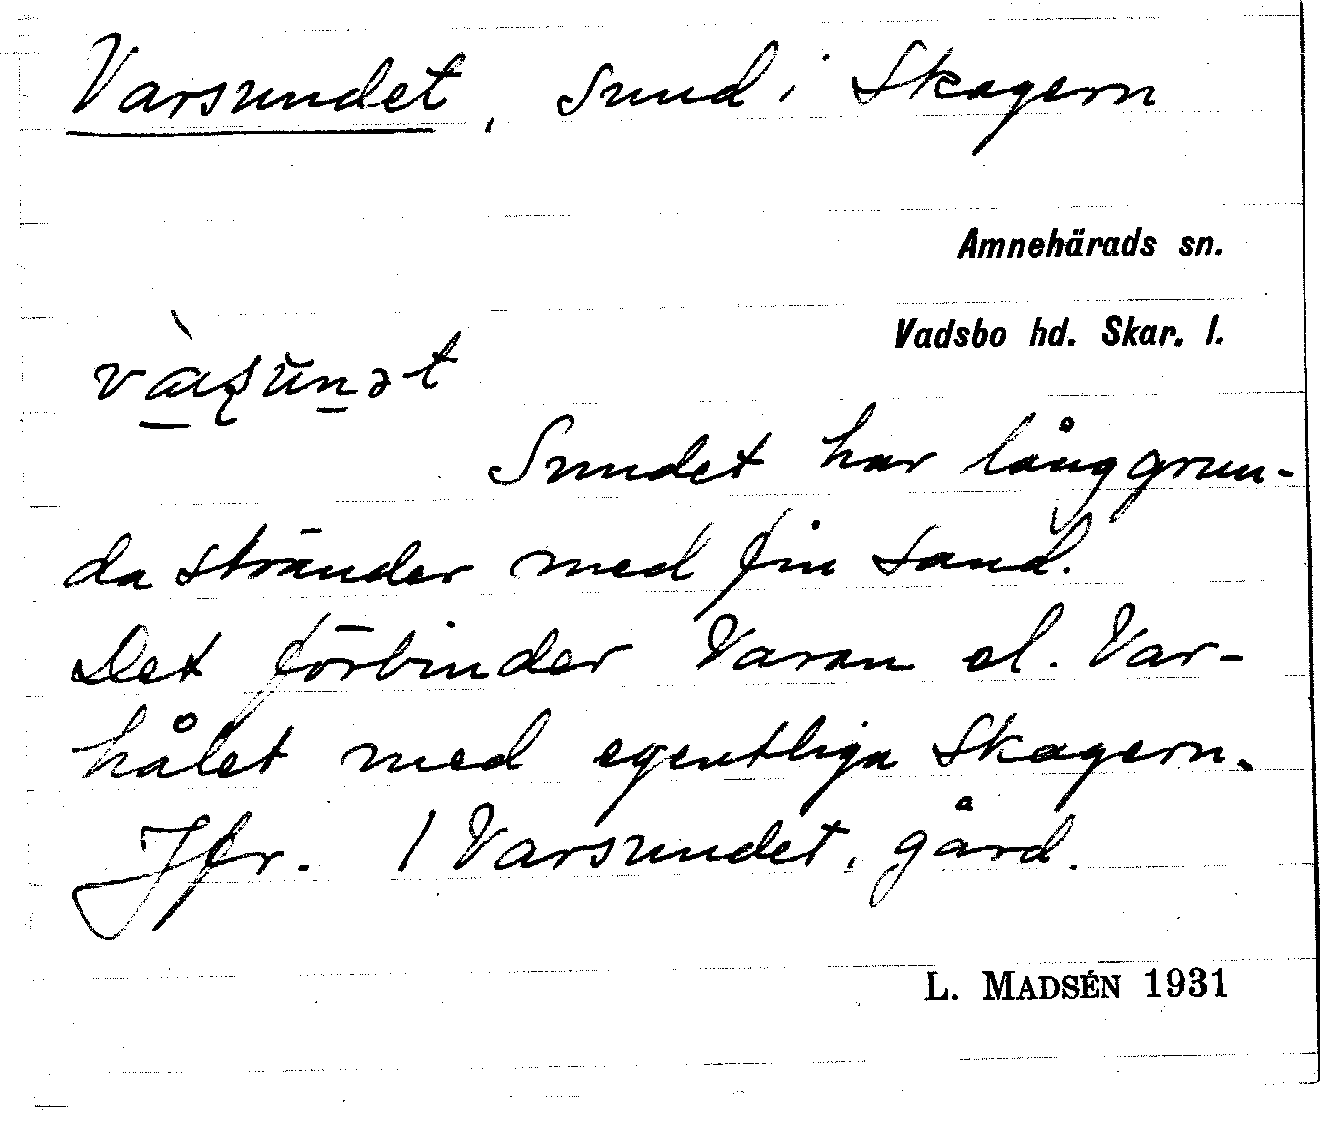 Varsundet, sund i Skagern
Amnehärads sn.
Vadsbo hd. Skar. l.
Sundet har långgrun-
da stränder med fin sand.
Det förbinder Varan el. Var-
hålet med egentliga Skagern.
Jfr. 1 Varsundet, gård.
L. MADSÉN 1931